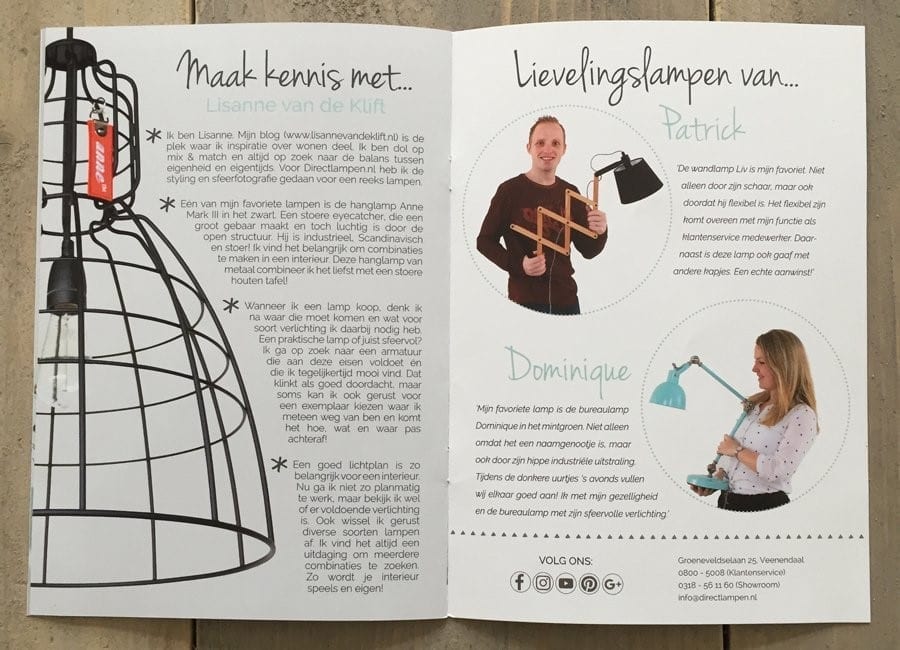 Maak kennis met...
Lisanne van de Klift
anne
* Ik ben Lisanne. Mijn blog (www.lisannevandeklift.nl) is de
plek waar ik inspiratie over wonen deel. Ik ben dol op
mix & match en altijd op zoek naar de balans tussen
eigenheid en eigentijds. Voor Directlampen.nl heb ik de
styling en sfeerfotografie gedaan voor een reeks lampen.
* Eén van mijn favoriete lampen is de hanglamp Anne
Mark III in het zwart. Een stoere eyecatcher, die een
groot gebaar maakt en toch luchtig is door de
open structuur. Hij is industrieel, Scandinavisch
en stoer! Ik vind het belangrijk om combinaties
te maken in een interieur. Deze hanglamp van
metaal combineer ik het liefst met een stoere
houten tafel!
* Wanneer ik een lamp koop, denk ik
na waar die moet komen en wat voor
soort verlichting ik daarbij nodig heb.
Een praktische lamp of juist sfeervol?
Ik ga op zoek naar een armatuur
die aan deze eisen voldoet én
die ik tegelijkertijd mooi vind. Dat
klinkt als goed doordacht, maar
soms kan ik ook gerust voor
een exemplaar kiezen waar ik
meteen weg van ben en komt
het hoe, wat en waar pas
achteraf!
* Een goed lichtplan is zo
belangrijk voor een interieur.
Nu ga ik niet zo planmatig
te werk, maar bekijk ik wel
of er voldoende verlichting
is. Ook wissel ik gerust
diverse soorten lampen
af. Ik vind het altijd een
uitdaging om meerdere
combinaties te zoeken.
Zo wordt je interieur
speels en eigen!
Lievelingslampen van...
Patrick
'De wandlamp Liv is mijn favoriet. Niet
alleen door zijn schaar, maar ook
doordat hij flexibel is. Het flexibel zijn
komt overeen met mijn functie als
klantenservice medewerker. Daar-
naast is deze lamp ook gaaf met
andere kapjes. Een echte aanwinst!'
Dominique
'Mijn favoriete lamp is de bureaulamp
Dominique in het mintgroen. Niet alleen
omdat het een naamgenootje is, maar
ook door zijn hippe industriële uitstraling.
Tijdens de donkere uurtjes 's avonds vullen
wij elkaar goed aan! Ik met mijn gezelligheid
en de bureaulamp met zijn sfeervolle verlichting.'
VOLG ONS:
Groeneveldselaan 25, Veenendaal
0800 - 5008 (Klantenservice)
0318 - 56 11 60 (Showroom)
info@directlampen.nl